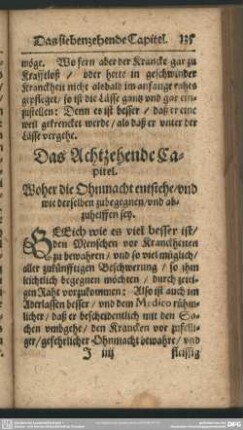 Das siebenzehende Capitel. 135
wöge. Wo fern aber der Krancke gar zu
Krafftloß / oder hette in geschwinder
Kranckheit nicht alsbald im anfange rahts
gepfleget / so ist die Lässe gantz vnd gar ein
zustellen: Denn es ist besser / daß er eine
weil gekrencket werde / als daß er vnter der
Lässe vergehe.
Das Achtzehende Ca-
pitel.
Woher die Ohnmacht entstehe / vnd
wie derselben zubegegnen / vnd ab-
zuhelffen sey.
GLEich wie es viel besser ist /
den Menschen vor Kranckheiten
zu bewahren / vnd so viel müglich /
aller zukünfftigen Beschwerung / so jhm
leichtlich begegnen möchten / durch zeiti-
gen Raht vorzukommen: Also ist auch im
Aderlassen besser / vnd dem Medico rühm-
licher / daß er bescheidentlich mit den Sa-
chen vmbgehe / den Krancken vor zufelli-
ger / gefehrlicher Ohnmacht bewahre / vnd
J iiij fleissig